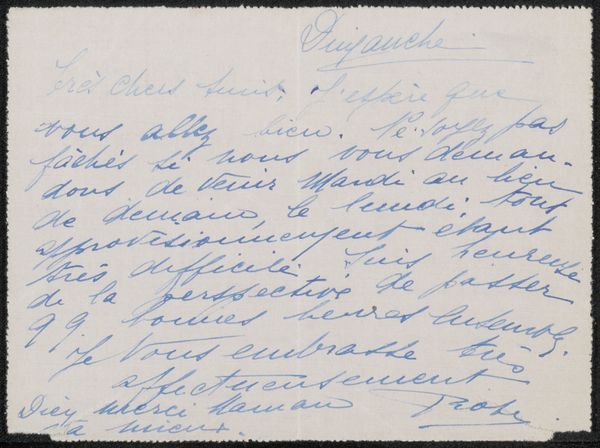 Dimanche
Très chers amis, J'espère que
vous allez bien. Ne soyez pas
fâchés si nous vous deman-
dons de venir Mardi au lieu
de demain, le lundi, tout
approvisionnement étant
très difficile. Suis heureuse
de la perspective de passer
qq. bonnes heures ensemble.
Je vous embrasse très
affectueusement
Dieu merci Maman
va mieux.